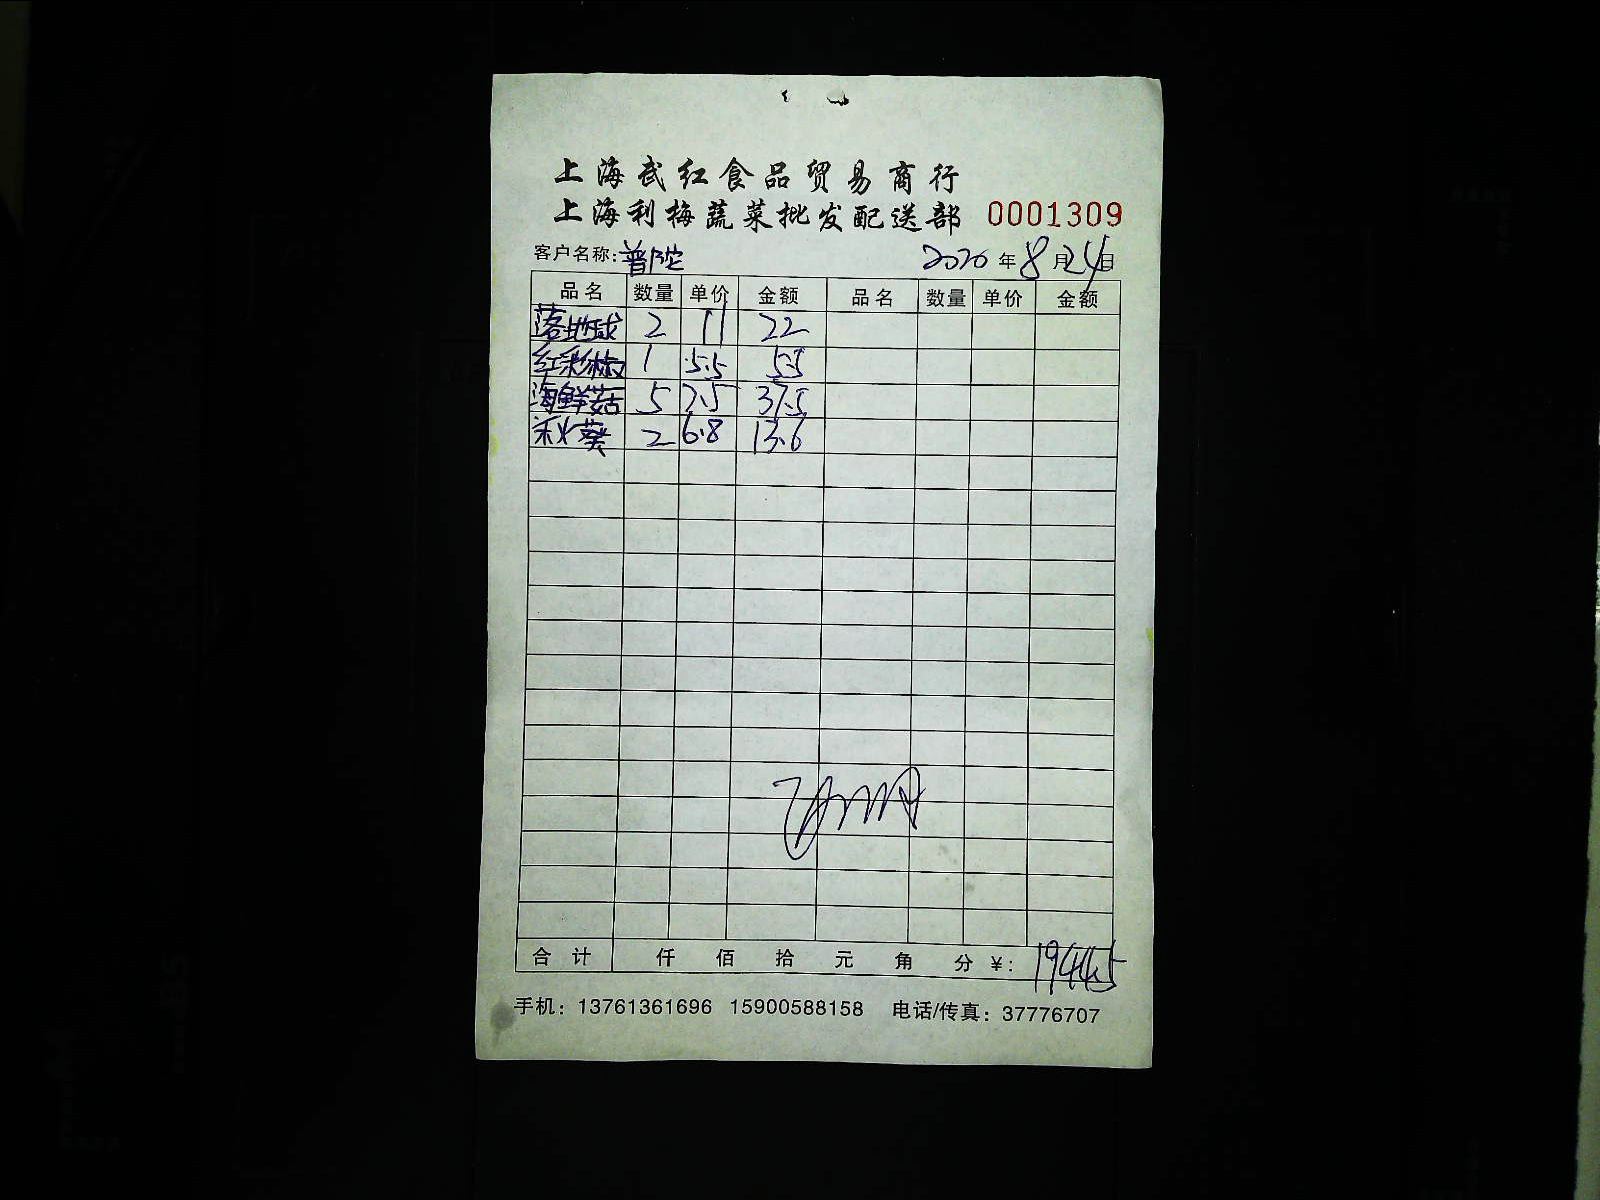 上海武红食品贸易商行
上海利梅蔬菜批发配送部 0001309
客户名称:普陀 2020年8月24日
品名 数量 单价 金额 品名 数量 单价 金额
落地球 2 11 22
红彩椒 1 5.5 5.5
海鲜菇 5 7.5 37.5
秋葵 2 6.8 13.6
合计 仟 佰 拾 元 角 分 ¥:
手机:13761361696 15900588158 电话/传真:37776707